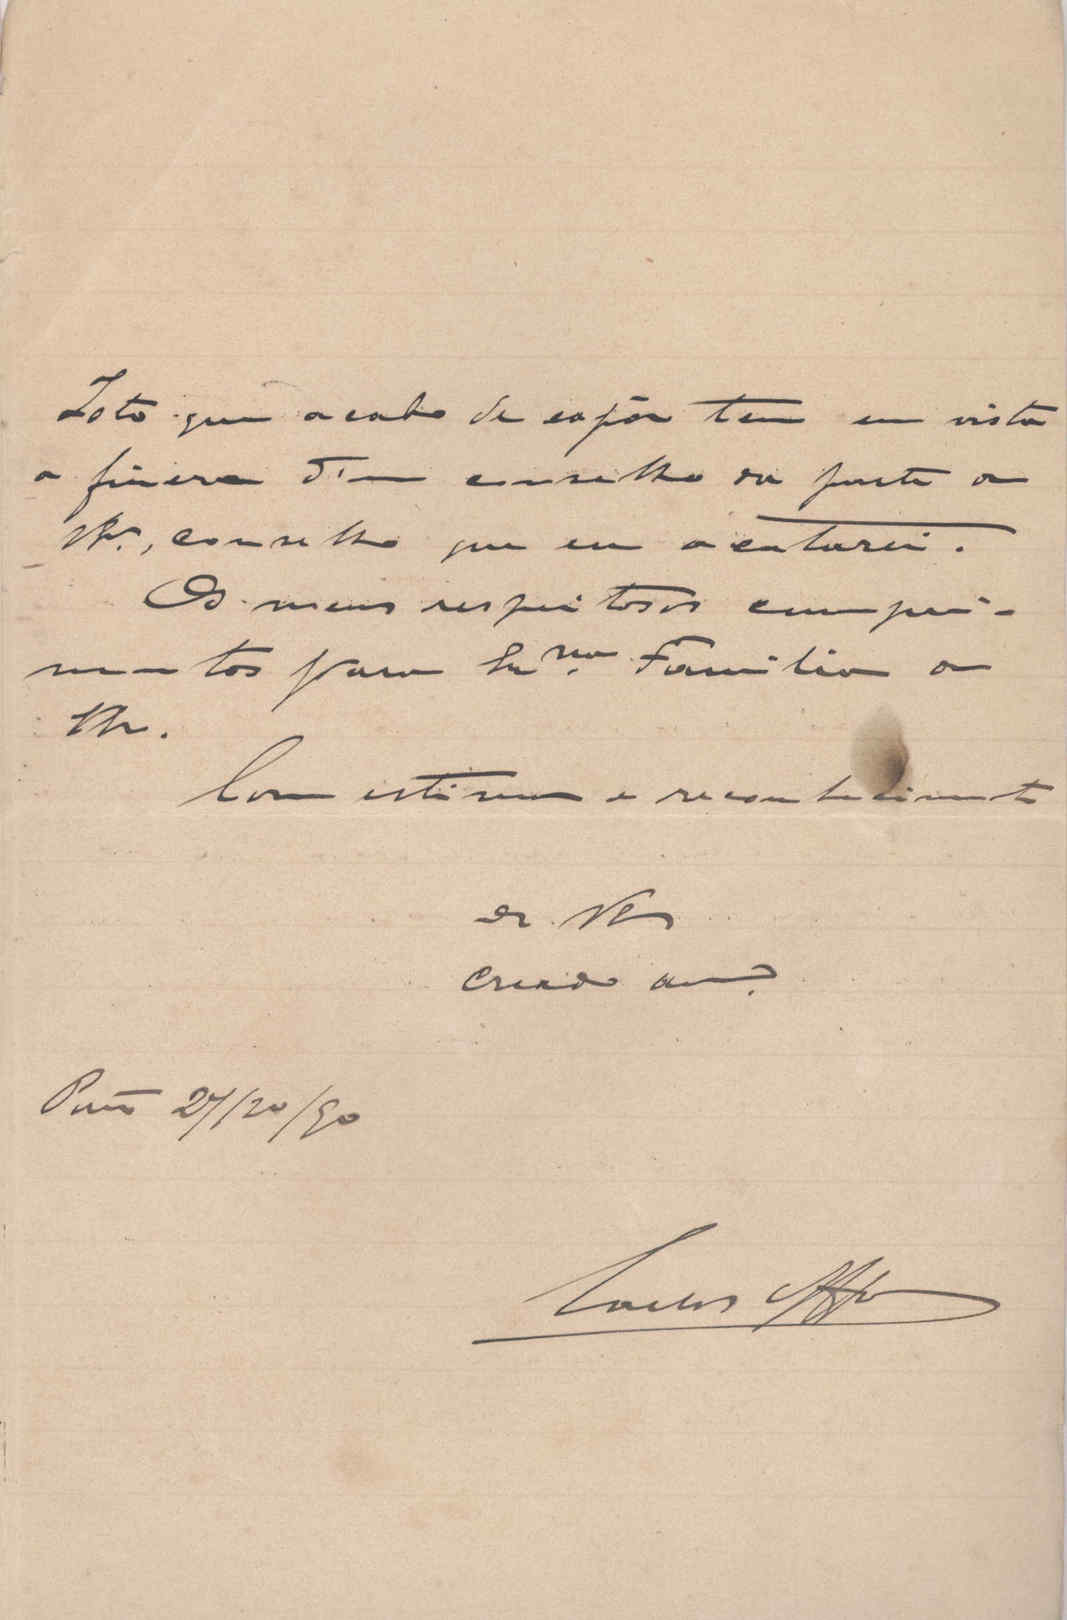 Isto que acabo de expôr tem em vista
a fineza d'um conselho da parte de
V. Ex.ª, conselho que eu acatarei.
Os meus respeitosos cumpri-
mentos para Ex.ma Familia de
Com estima e reconhecimento
de V. Ex.ª
Creado
27/10/90
Carlos Affº